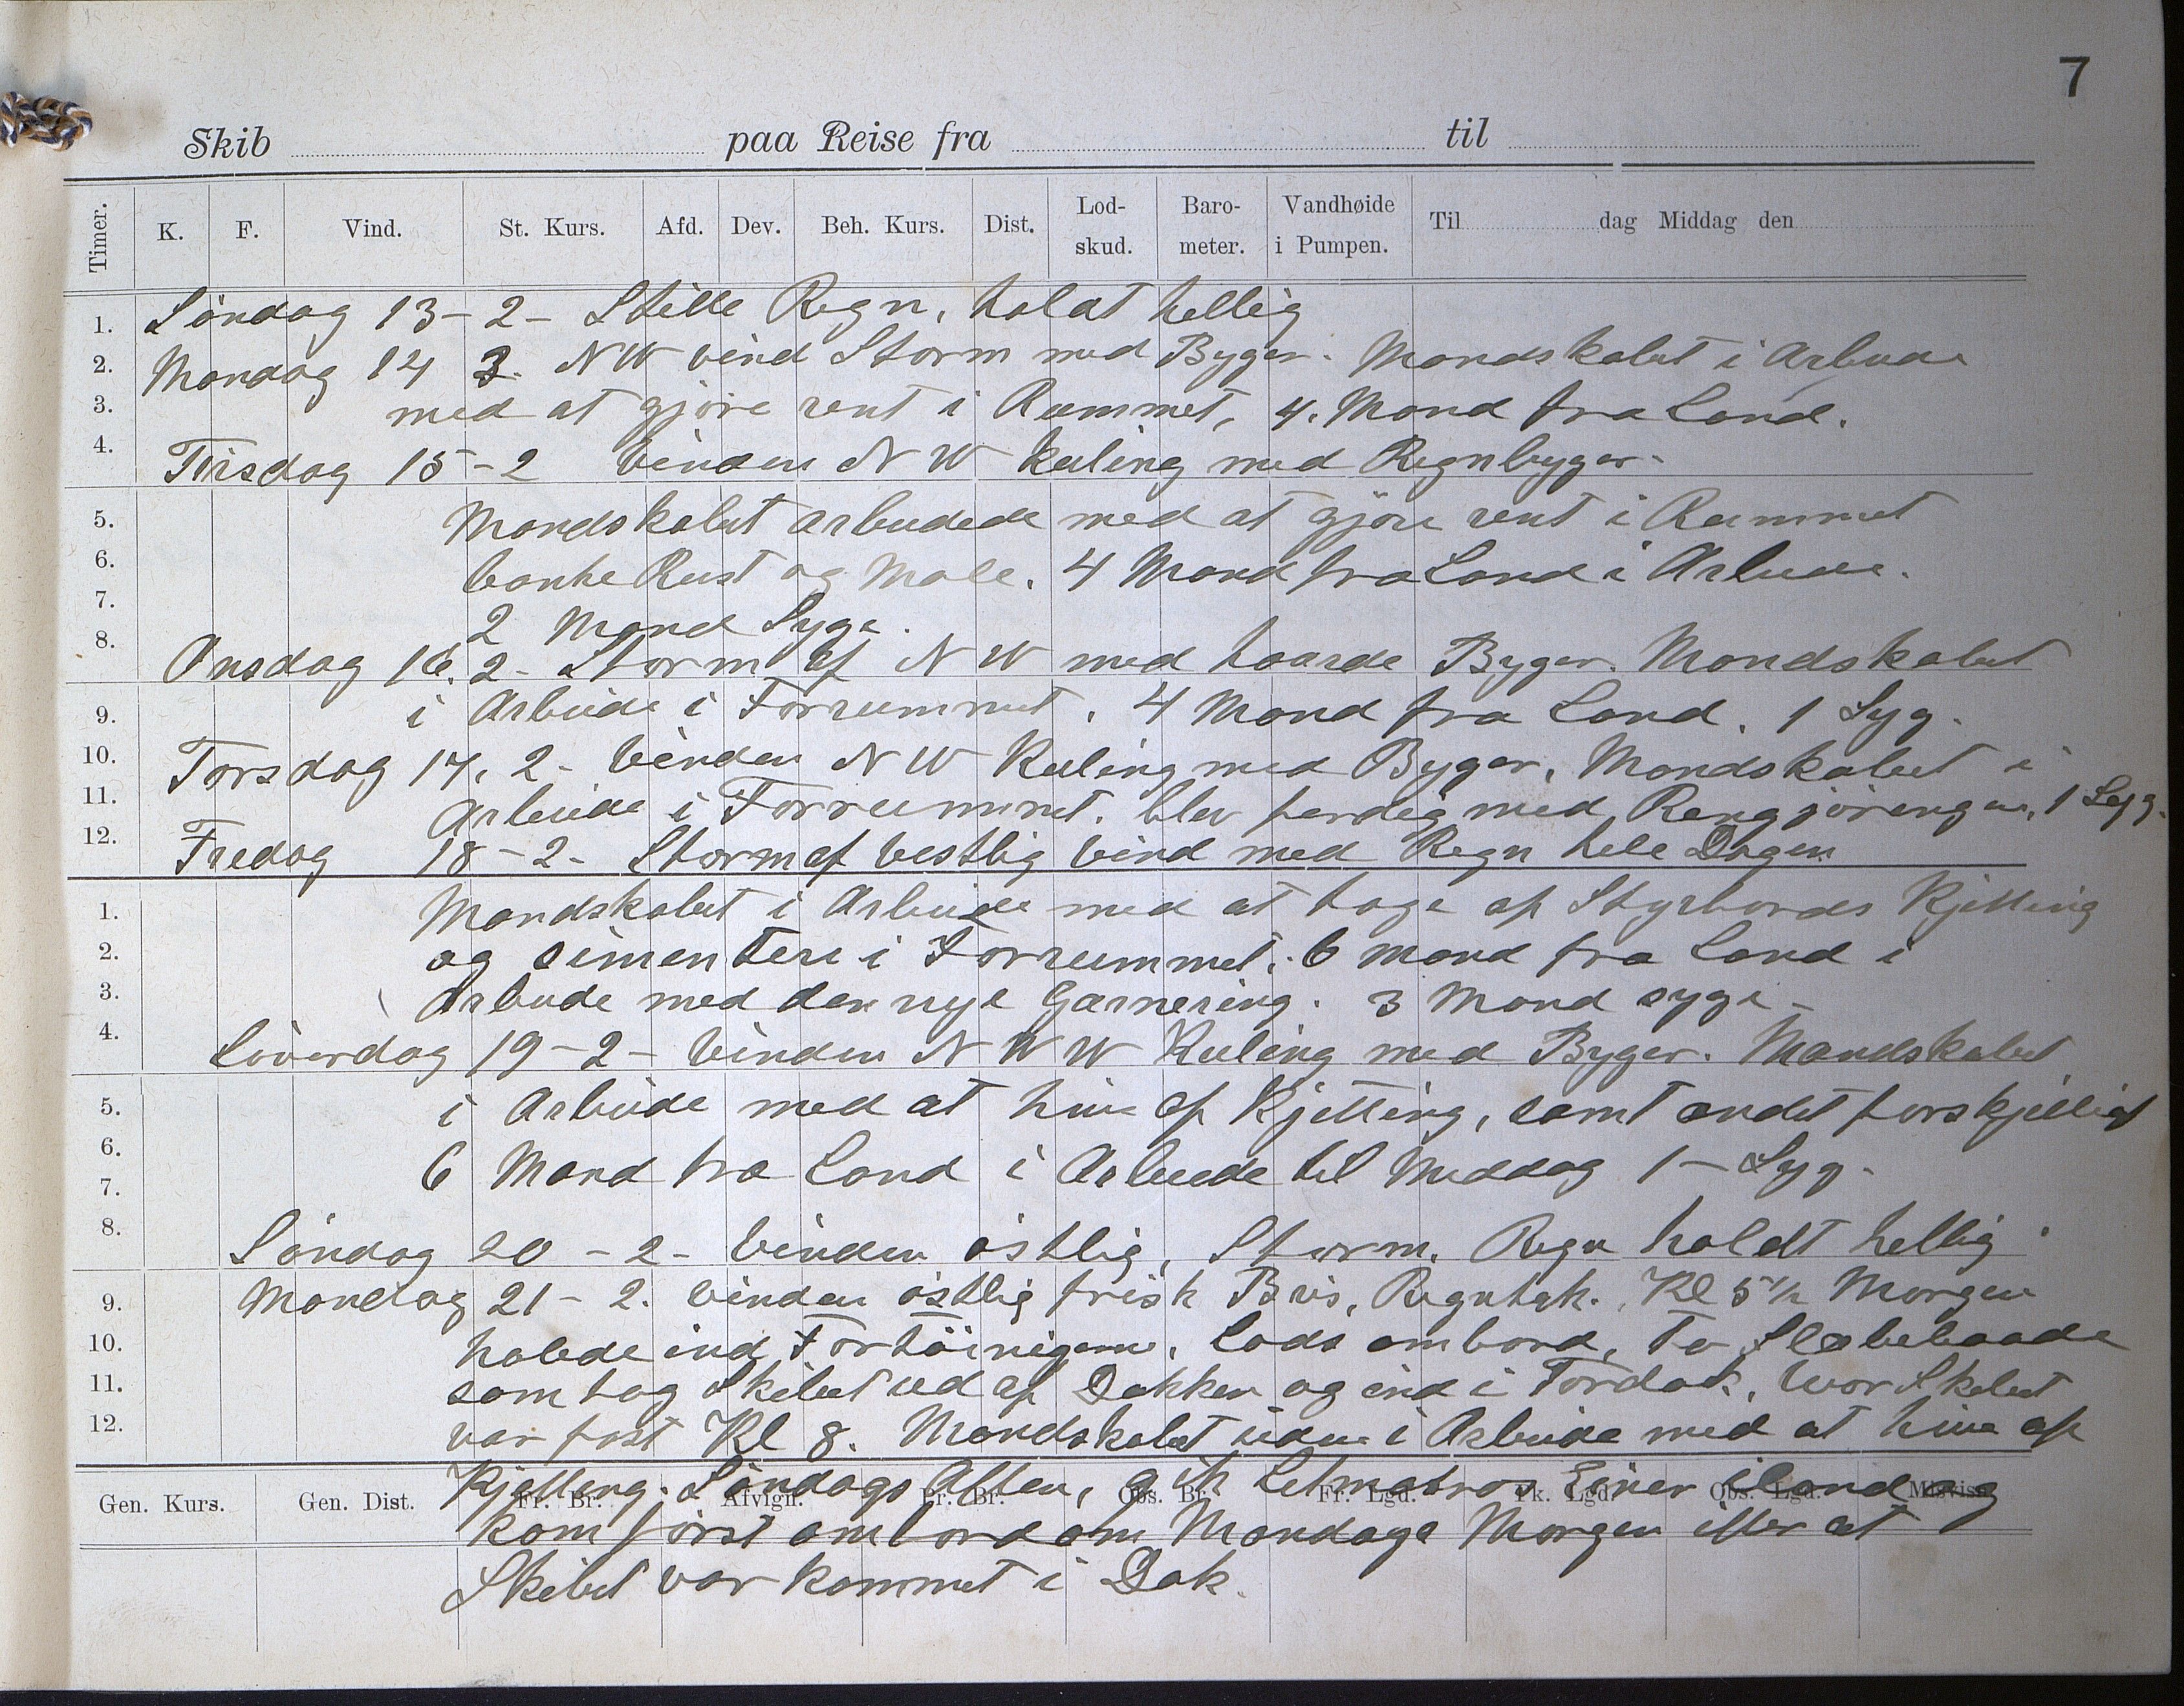 7
Skib paa Reise fra til
Timer. K. F. Vind. St. Kurs. Afd. Dev. Beh. Kurs. Dist. Lod-skud. Baro-meter. Vandhøide i Pumpen. Til dag Middag den
1. Söndag 13-2- Stille Regn, holdt hellig
2. Mandag 14 2. NW vind Storm med Byger. Mandskabet i Arbeide
3. med at gjöre rent i Rummet, 4. Mand fra Land.
4. Tirsdag 15-2 Vinden NW Kuling med Regnbyger-
5. Mandskabet arbeidede med at gjöre rent i Rummet
6. banke Rust og Male. 4 Mand fra Land i Arbeide.
7. 2 Mand Syge.
8. Onsdag 16. 2- Storm af NW med haarde Byger. Mandskabet
9. i Arbeide i Forrummet, 4 Mand fra Land. 1 Syg.
10. Torsdag 17. 2- Vinden NW Kuling med Byger, Mandskabet i
11. Arbeide i Forrummet. blev ferdig med Rengjöringen, 1 Syg.
12. Fredag 18-2- Storm af Vestlig Vind med Regn hele Dagen
1. Mandskabet i Arbeide med at tage af Styrbords Kjetting
2. og simentere i Forrummet. 6 Mand fra Land i
3. Arbeide med den nye Garnering. 3 Mand syge-
4. Löverdag 19-2- Vinden NWW Kuling med Byger. Mandskabet
5. i Arbeide med at hive af Kjetting, samt andet forskjelligt
6. 6 Mand fra Land i Arbeide til Middag 1- Syg-
7.
8. Söndag 20-2- Vinden östlig, Storm. Regn holdt hellig.
9. Mandag 21-2. Vinden östlig frisk Bris, Regntyk. Kl 5½ Morgen
10. halede ind Fortöiningerne, Lods ombord, To Slæbebaade
11. som tog Skibet ud af Dokken og ind i Tördok, hvor Skibet
12. var fast Kl 8. Mandskabet i Arbeide med at hive af
Gen. Kurs. Gen. Dist. Fr. Br. Afvign. Pr. Br. Obs. Br. Fr. Lgd. Pk. Lgd. Obs. Lgd. Misvisn.
Kjetting. Söndags Aften, gik Letmatros Einer iland og
kom först ombord om Mandags Morgen efter at
Skibet var kommet i Dok.